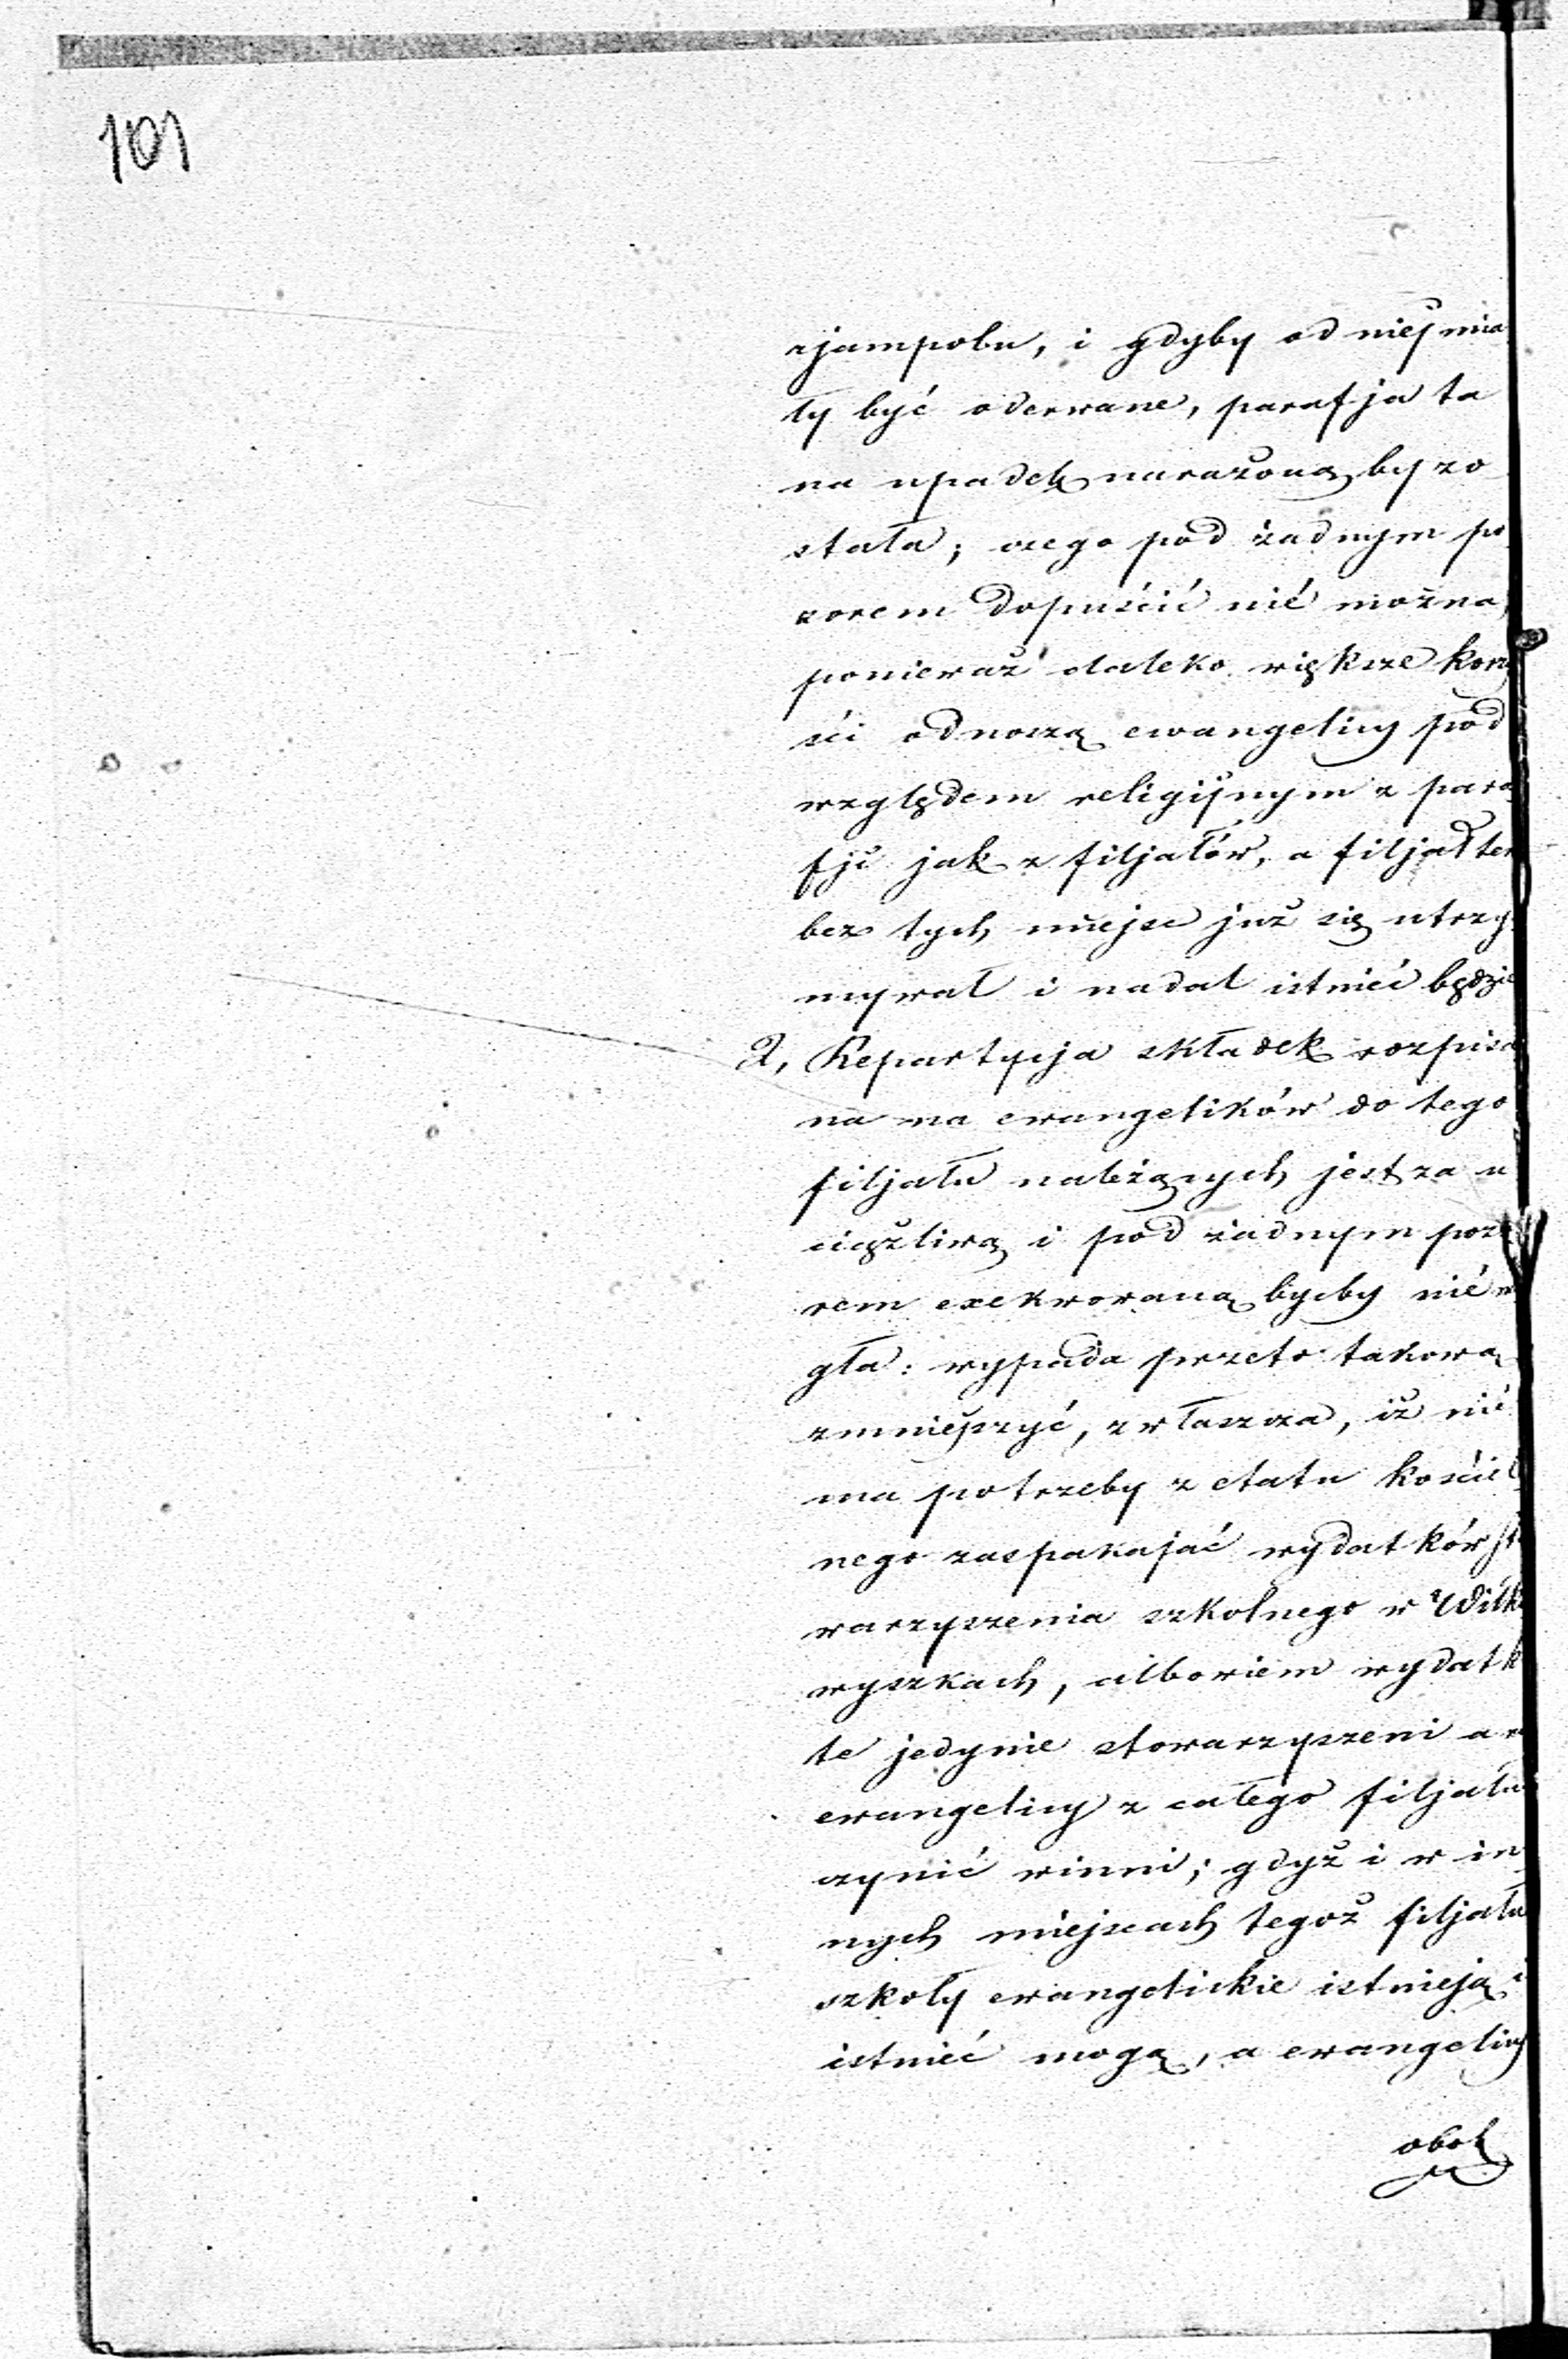 101
rjampolu, i gdyby od niej mia
ły być oderwane, parafja ta
na upadek narażoną by zo
stała; czego pod żadnym po
zorem dopuścić nié można,
ponieważ daleko większe korzy
ści odnoszą ewangelicy pod
względem religijnym z para
fji jak z filjałów, a filjał ten
bez tych miejsc już się utrzy
mywał i nadal istnieć będzie
2, Repartycja składek rozpisa
na na ewangelików do tego
filjału należących jest za u
ciążliwą i pod żadnym pozo
rem exekwowaną byćby nié mo
gła: wypada przeto takową
zmniejszyć, zwłaszcza, iż nié
ma potrzeby z etatu kościel
nego zaspakajać wydatków sto
warzyszenia szkolnego w Wiłko
wyszkach, albowiem wydatki
te jedynie stowarzyszeni a
ewangelicy z całego filjału
czynić winni; gdyż i w in
nych miejscach tegoż filjału
szkoły ewangelickie istnieją i
istnieć mogą, a ewangelicy
obok